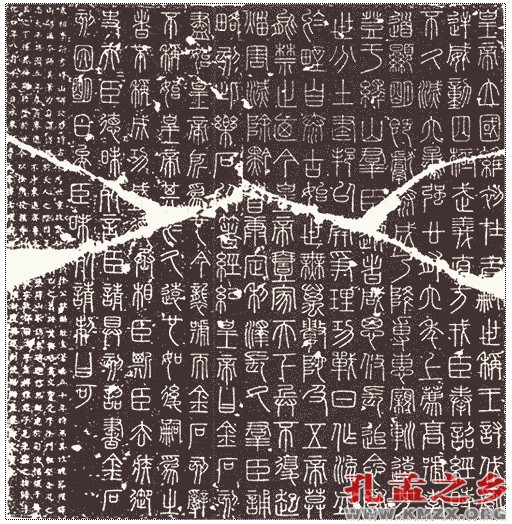 皇帝立國維初在昔嗣世稱王討伐亂
逆威動四極武義直方戎臣奉詔經時
不久滅六暴強廿有六年上薦高號孝
道顯明既獻泰成乃降專惠親巡遠方
登于繹山群臣從者咸思攸長追念亂
世分土建邦以開爭理功戰日作流血
於野自泰古始世無萬數陀及五帝莫
能禁止迺今皇帝壹家天下兵不復起
災害滅除黔首康定利澤長久群臣誦
略刻此樂石以著經紀皇帝曰金石刻
盡始皇帝所為也今襲號而金石刻辭
不稱始皇帝其於久遠也如後嗣為之
者不稱成功盛德丞相臣斯臣去疾御
史夫臣德昧死言臣請具刻詔書金石
刻因明白矣臣昧死請制曰可
孔孟之乡
WWW.KMZX.ORG